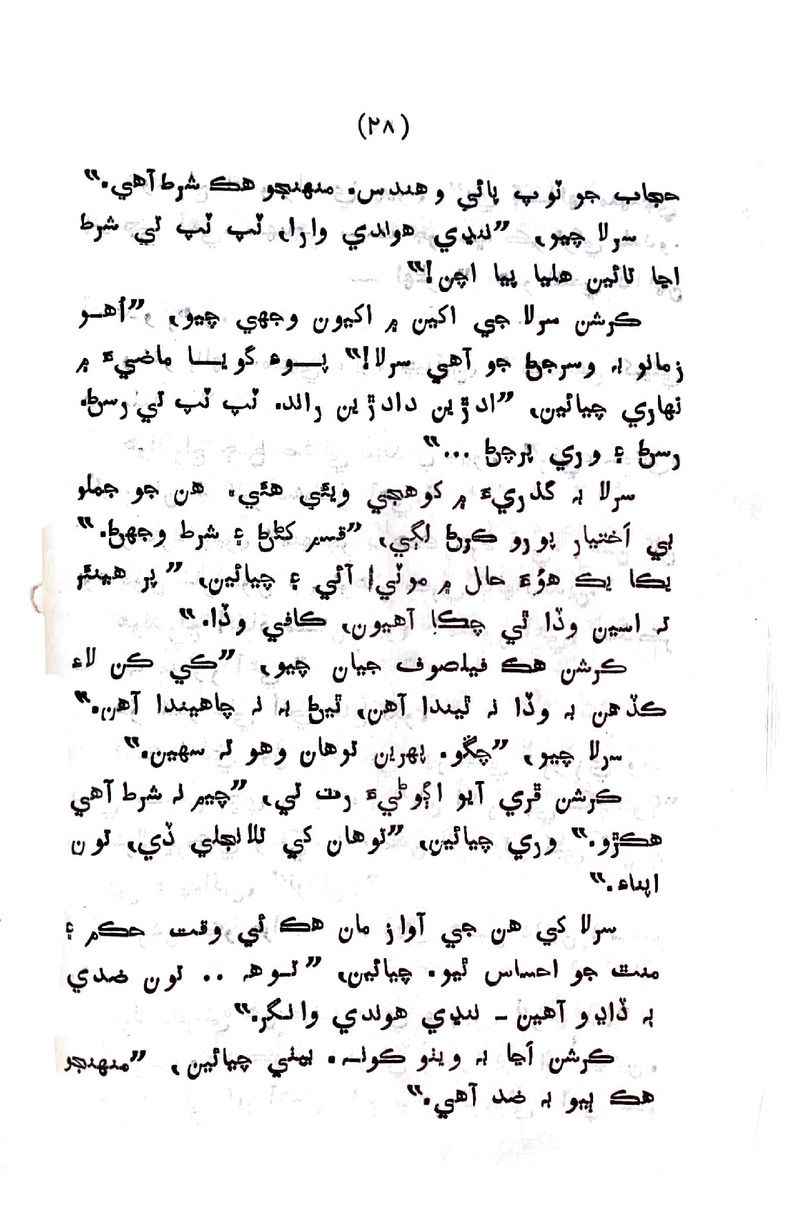 (۲۸)
حجاب جو ٽوپ پائي وهندس. منهنجو هڪ شرط آهي."
سرلا چيو, "ننڍي هوندي وارا, ٽپ ٽپ تي شرط
اڃا تائين هليا پيا اچن!"
ڪرشن سرلا جي اکين ۾ اکيون وجهي چيو, "اُهو
زمانو بہ وسرجڻ جو آهي سرلا!" پوءِ گويا ماضيءَ ۾
نهاري چيائين, "ادڙين دادڙين راند. ٽپ ٽپ تي رسڻ.
رسڻ ۽ وري پرچڻ ..."
سرلا بہ گذريءَ ۾ کوهجي ويئي هئي. هن جو جملو
بي اختيار پورو ڪرڻ لڳي, "قسم کڻڻ ۽ شرط وجهڻ."
يڪا يڪ هوءَ حال ۾ موٽي آئي ۽ چيائين, "پر هينئر
تہ اسين وڏا ٿي چڪا آهيون, ڪافي وڏا."
ڪرشن هڪ فيلصوف جيان چيو, "ڪي ڪن لاءِ
ڪڏهن بہ وڏا نہ ٿيندا آهن, ٿيڻ بہ نہ چاهيندا آهن."
سرلا چيو, "چڱو. پهرين توهان وهو تہ سهين."
ڪرشن ڦري آيو اڳوڻيءَ رٽ تي, "چيم نہ شرط آهي
هڪڙو." وري چيائين, "توهان کي تلانجلي ڏي, تون
اپناءِ."
سرلا کي هن جي آواز مان هڪ ئي وقت حڪم ۽
منٿ جو احساس ٿيو. چيائين, "توهہ .. تون ضدي
بہ ڏاڍو آهين ـ ننڍي هوندي وانگر."
ڪرشن اڃا بہ ويٺو ڪونہ. بيٺي چيائين, "منهنجو
هڪ ٻيو بہ ضد آهي."